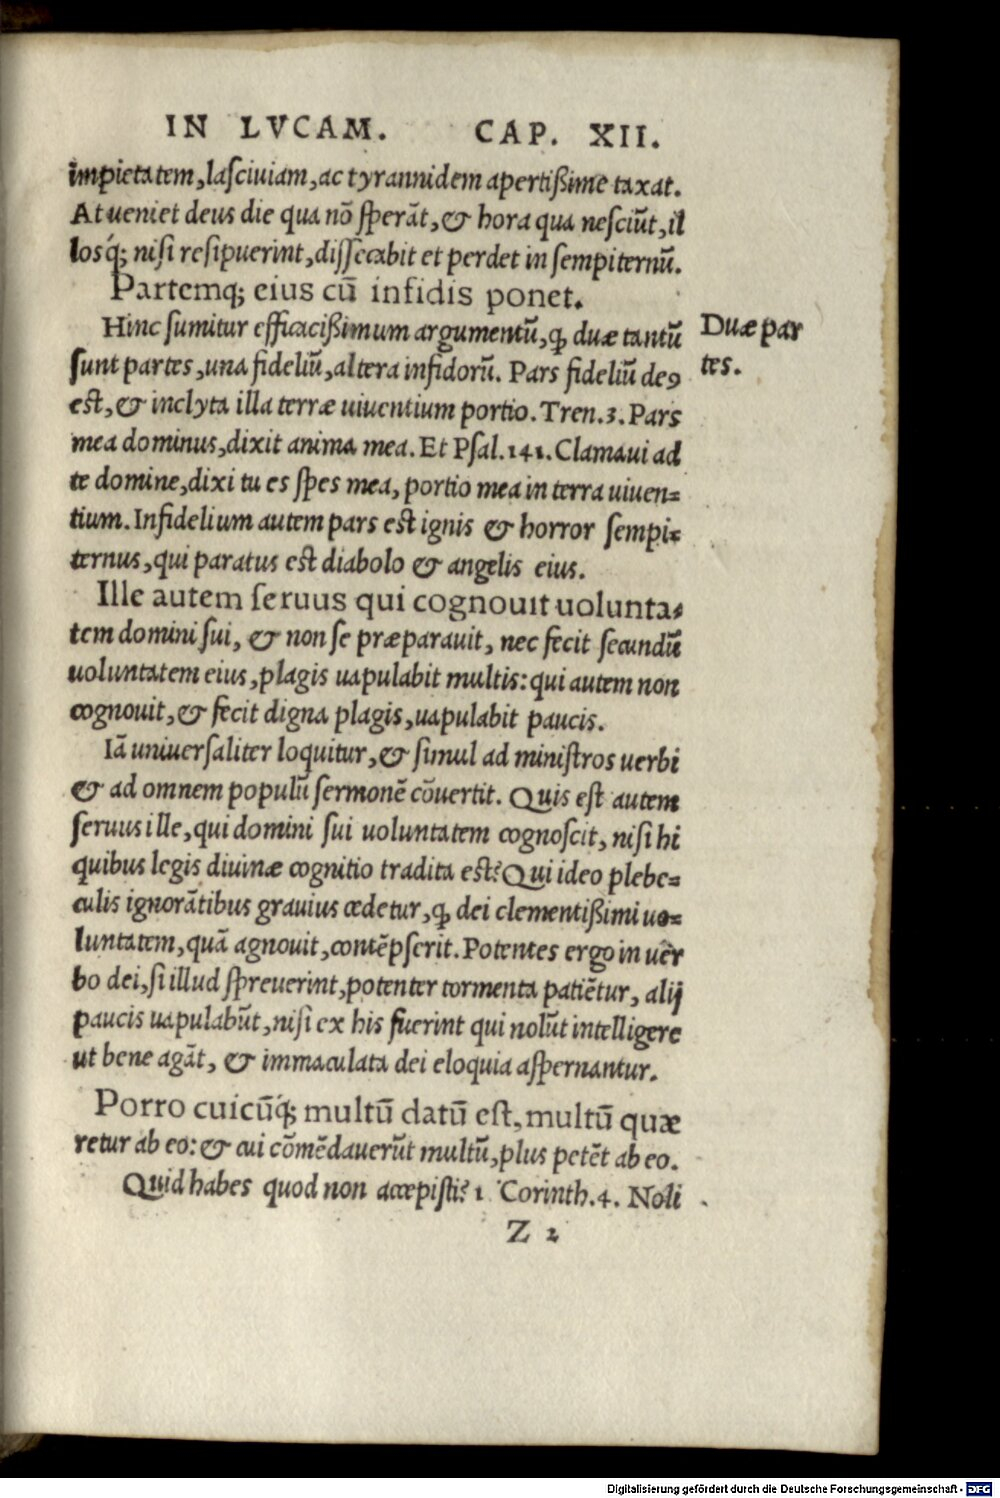 IN LVCAM. CAP. XII.
impietatem, lasciuiam, ac tyrannidem apertißime taxat.
At ueniet deus die qua nō sperāt, & hora qua nesciūt, il
losq́; nisi resipuerint, dissecabit et perdet in sempiternū.
Partemq; eius cū infidis ponet.
Hinc sumitur efficacißimum argumentū, ꝙ duæ tantū
Duæ par
sunt partes, una fideliū, altera infidorū. Pars fideliū deꝰ
tes.
est, & inclyta illa terræ uiuentium portio. Tren.3. Pars
mea dominus, dixit anima mea. Et Psal.141. Clamaui ad
te domine, dixi tu es spes mea, portio mea in terra uiuen=
tium. Infidelium autem pars est ignis & horror sempi=
ternus, qui paratus est diabolo & angelis eius.
Ille autem seruus qui cognouit uolunta=
tem domini sui, & non se præparauit, nec fecit secundū
uoluntatem eius, plagis uapulabit multis: qui autem non
cognouit, & fecit digna plagis, uapulabit paucis.
Iā uniuersaliter loquitur, & simul ad ministros uerbi
& ad omnem populū sermonē cōuertit. Quis est autem
seruus ille, qui domini sui uoluntatem cognoscit, nisi hi
quibus legis diuinæ cognitio tradita est? Qui ideo plebe=
culis ignorātibus grauius cædetur, ꝙ dei clementißimi uo=
luntatem, quā agnouit, contēpserit. Potentes ergo in uer
bo dei, si illud spreuerint, potenter tormenta patiētur, alij
paucis uapulabūt, nisi ex his fuerint qui nolūt intelligere
ut bene agāt, & immaculata dei eloquia aspernantur.
Porro cuicūq́; multū datū est, multū quæ
retur ab eo: & cui cōmēdauerūt multū, plus petēt ab eo.
Quid habes quod non accepisti? 1 Corinth.4. Noli
Z 2
Digitalisierung gefördert durch die Deutsche Forschungsgemeinschaft - DFG